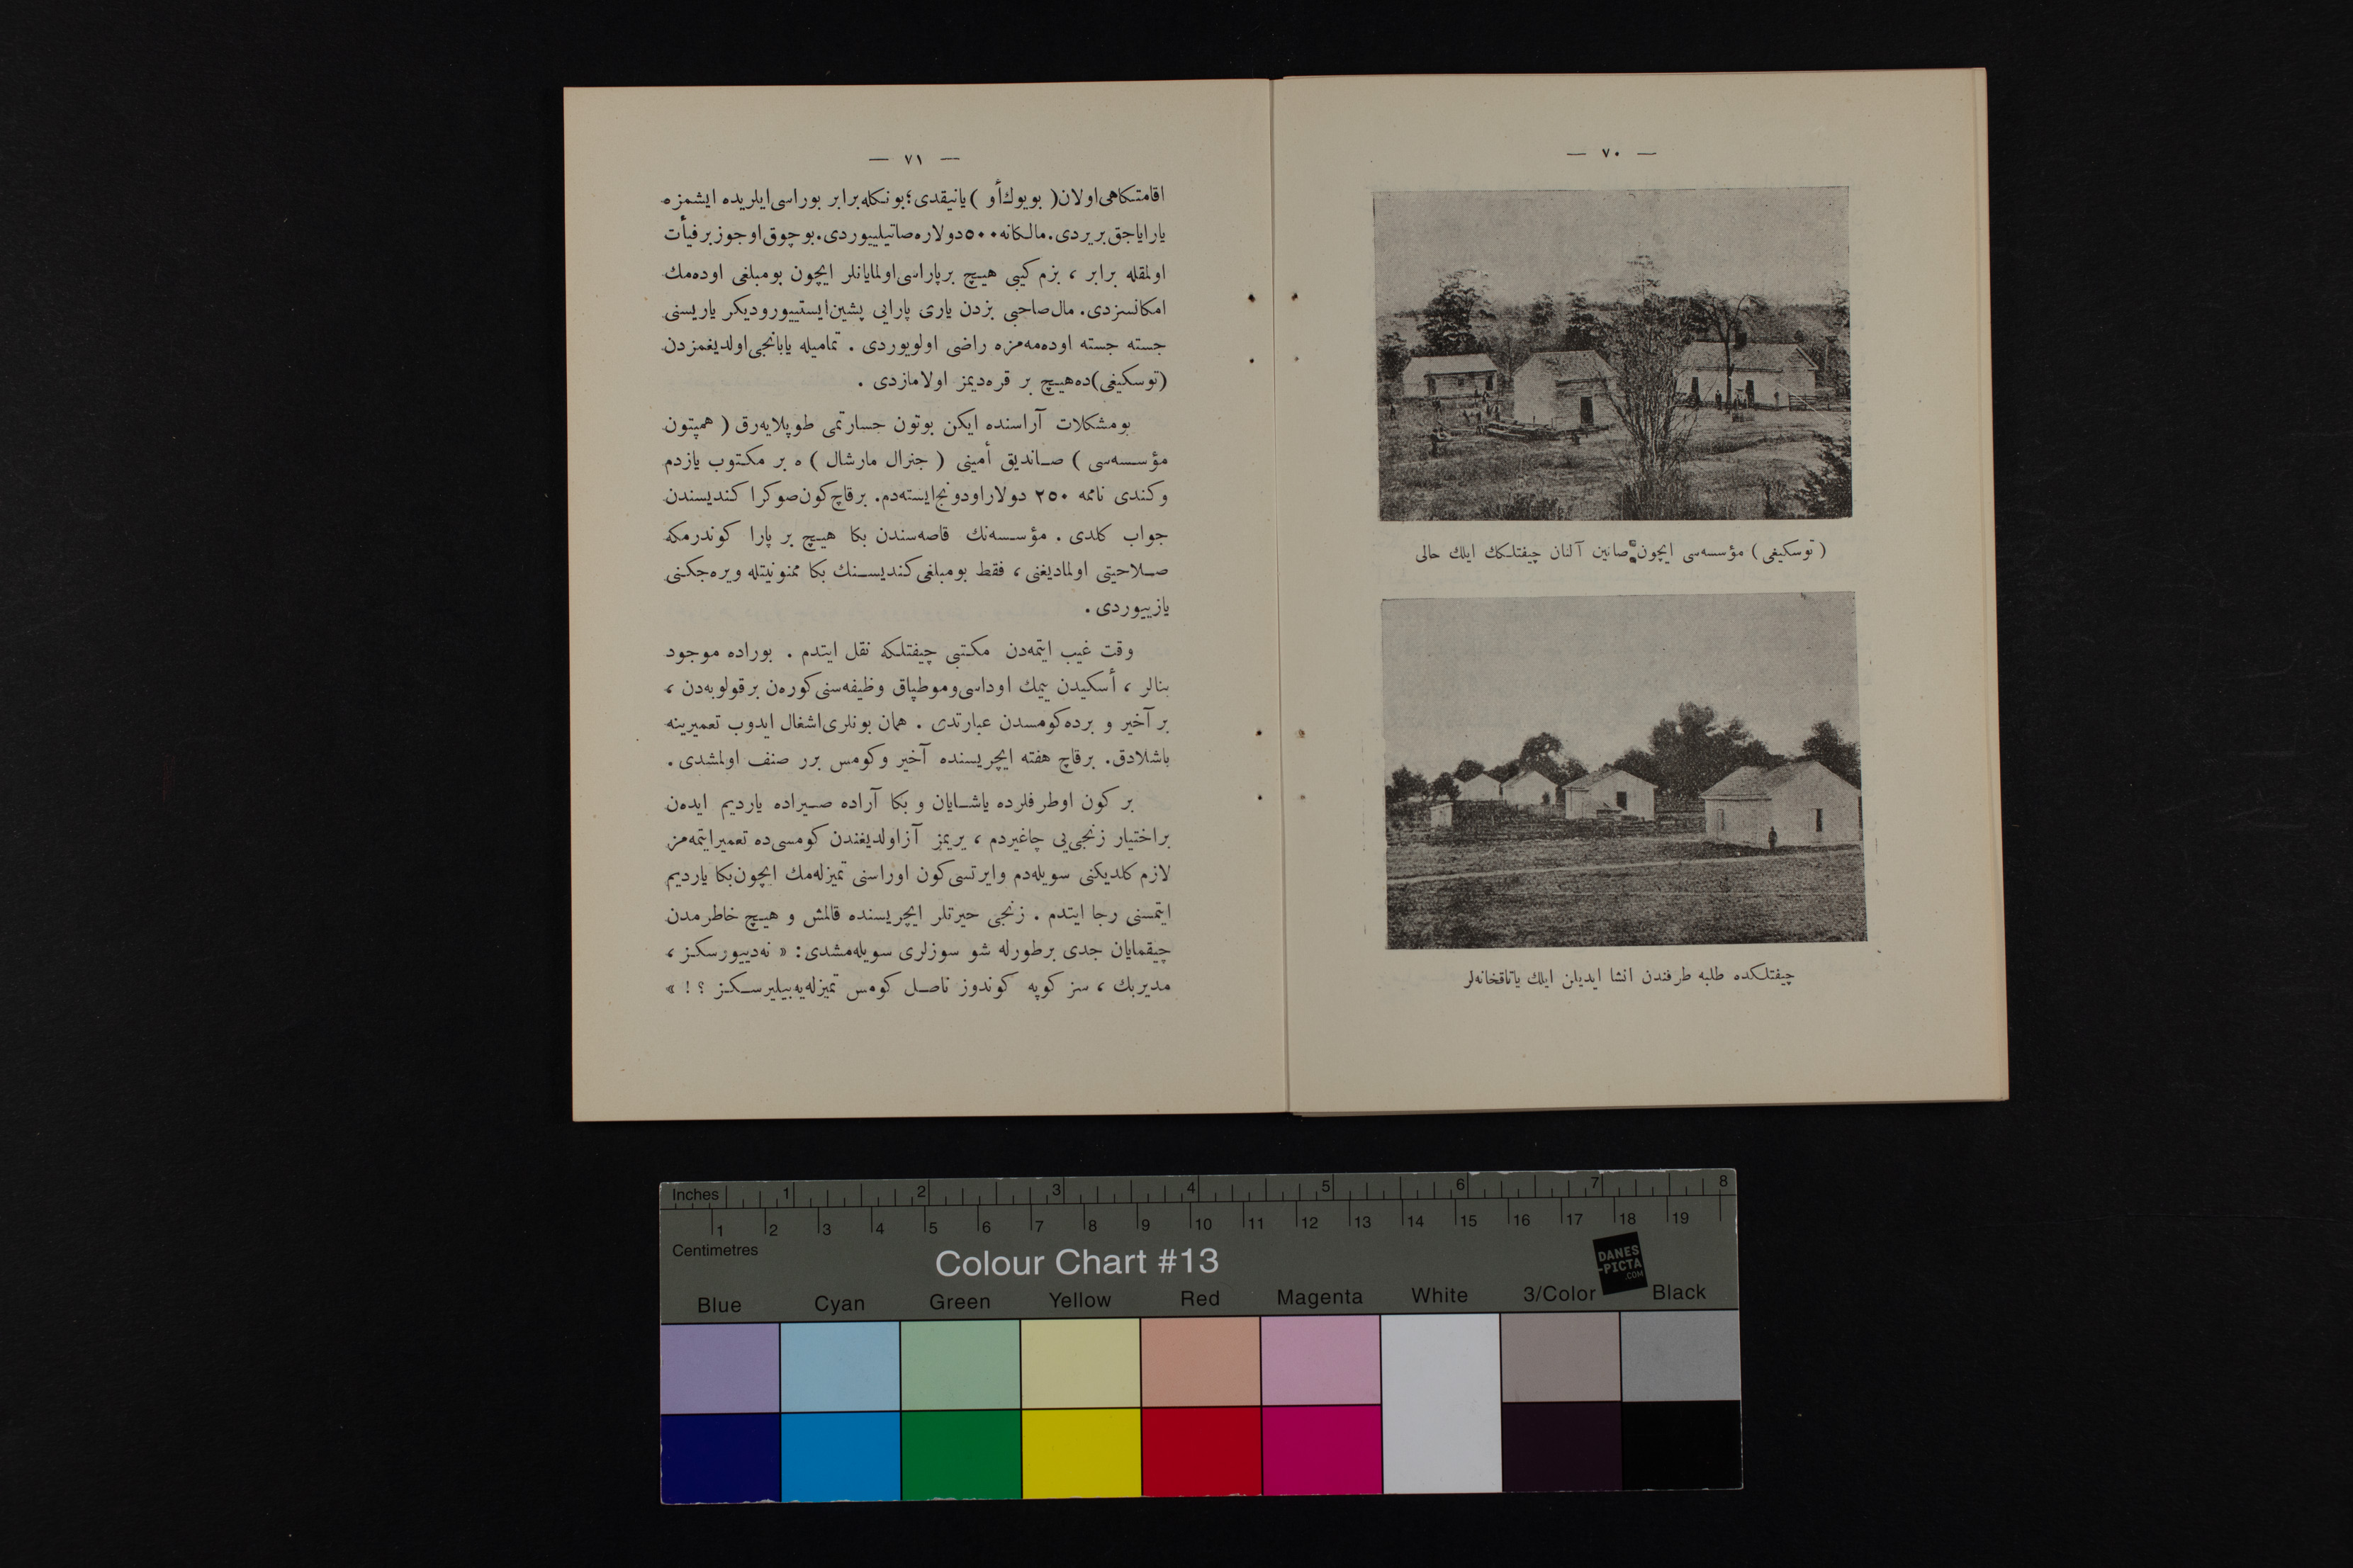 — ٧٠ —
( توسكیغی ) مؤسسه‌سی ایچون صاتین آلنان چیفتلكك ایلك حالی
چیفتلكده طلبه طرفندن انشا ایدیلن ایلك یاتاقخانه‌لر
— ٧١ —
اقامتكاهی اولان ( بویوك أو ) یانیقدی؛ بونكله برابر بوراسی ایلریده ایشمزه
یارایاجق بر یردی. مالكانه ٥٠٠ دولاره صاتیلییوردی. بو چوق اوجوز بر فیأت
اولمقله برابر ، بزم كیبی هیچ بر پاراسی اولمایانلر ایچون بو مبلغی اوده‌مك
امكانسزدی. مال صاحبی بزدن یاری پارایی پشین ایستییور و دیكر یاریسنی
جسته جسته اوده‌مه‌مزه راضی اولویوردی . تمامیله یابانجی اولدیغمزدن
(توسكیغی) ده هیچ بر قره‌دیمز اولامازدی .
بو مشكلات آراسنده ایكن بوتون جسارتمی طوپلایه‌رق ( همپتون
مؤسسه‌سی ) صاندیق أمینی ( جنرال مارشال ) ه بر مكتوب یازدم
و كندی نامه ٢٥٠ دولار اودونج ایسته‌دم. بر قاچ كون صوكرا كندیسندن
جواب كلدی . مؤسسه‌نك قاصه‌سندن بكا هیچ بر پارا كوندرمكه
صلاحیتی اولمادیغنی ، فقط بو مبلغی كندیسنك بكا ممنونیتله ویره‌جكنی
یازییوردی .
وقت غیب ایتمه‌دن مكتبی چیفتلكه نقل ایتدم . بوراده موجود
بنالر ، أسكیدن ییمك اوداسی و موطپاق وظیفه‌سنی كوره‌ن بر قولوبه‌دن ،
بر آخیر و برده كومسدن عبارتدی . همان بونلری اشغال ایدوب تعمیرینه
باشلادق. بر قاچ هفته ایچریسنده آخیر و كومس برر صنف اولمشدی .
بر كون او طرفلرده یاشایان و بكا آراده صیراده یاردیم ایده‌ن
بر اختیار زنجی‌یی چاغیردم ، یریمز آز اولدیغندن كومسی‌ده تعمیر ایتمه‌مز
لازم كلدیكنی سویله‌دم و ایرتسی كون اوراسنی تمیزله‌مك ایچون بكا یاردیم
ایتمسنی رجا ایتدم . زنجی حیرتلر ایچریسنده قالمش و هیچ خاطرمدن
چیقمایان جدی بر طورله شو سوزلری سویله‌مشدی : « نه‌دییورسكز ،
مدیر بك ، سز كوپه كوندوز ناصل كومس تمیزله‌یه بیلیرسكز ؟ ! »
Inches 1 2 3 4 5 6 7 8
1 2 3 4 5 6 7 8 9 10 11 12 13 14 15 16 17 18 19
Centimetres
Colour Chart #13
DANES
-PICTA
.COM
Blue Cyan Green Yellow Red Magenta White 3/Color Black